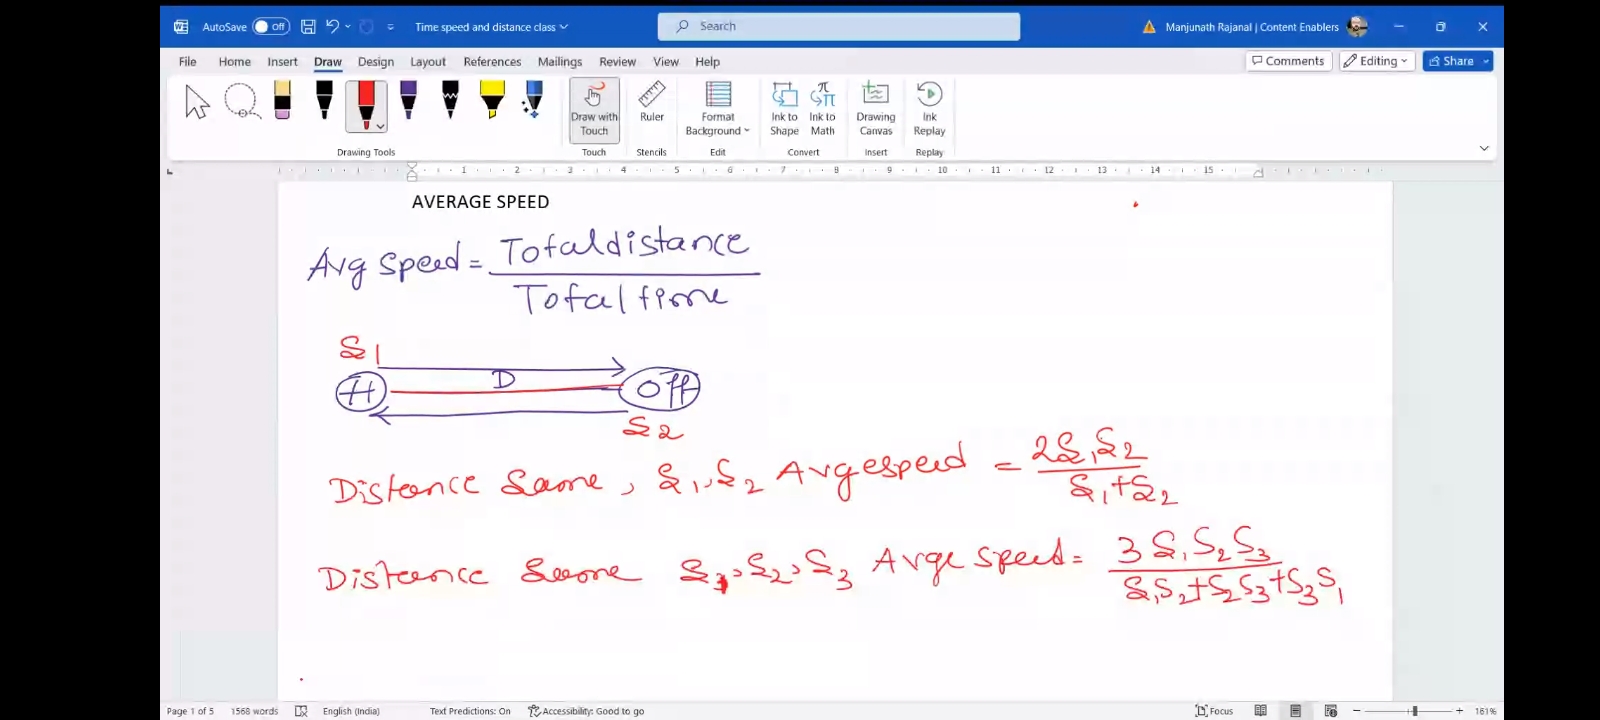 AutoSave Off Time speed and distance class Search Manjunath Rajanal | Content Enablers
File Home Insert Draw Design Layout References Mailings Review View Help Comments Editing Share
Draw with Touch Ruler Format Background Ink to Shape Ink to Math Drawing Canvas Ink Replay
Drawing Tools Touch Stencils Edit Convert Insert Replay
1 2 3 4 5 6 7 8 9 10 11 12 13 14 15
AVERAGE SPEED
Avg Speed = Total distance
Total time
S1
H D Off
S2
Distance Same, S1, S2 Avge speed = 2S1S2
S1+S2
Distance Same S1, S2, S3 Avge Speed = 3 S1S2S3
S1S2+S2S3+S3S1
Page 1 of 5 1568 words English (India) Text Predictions: On Accessibility: Good to go Focus 161%